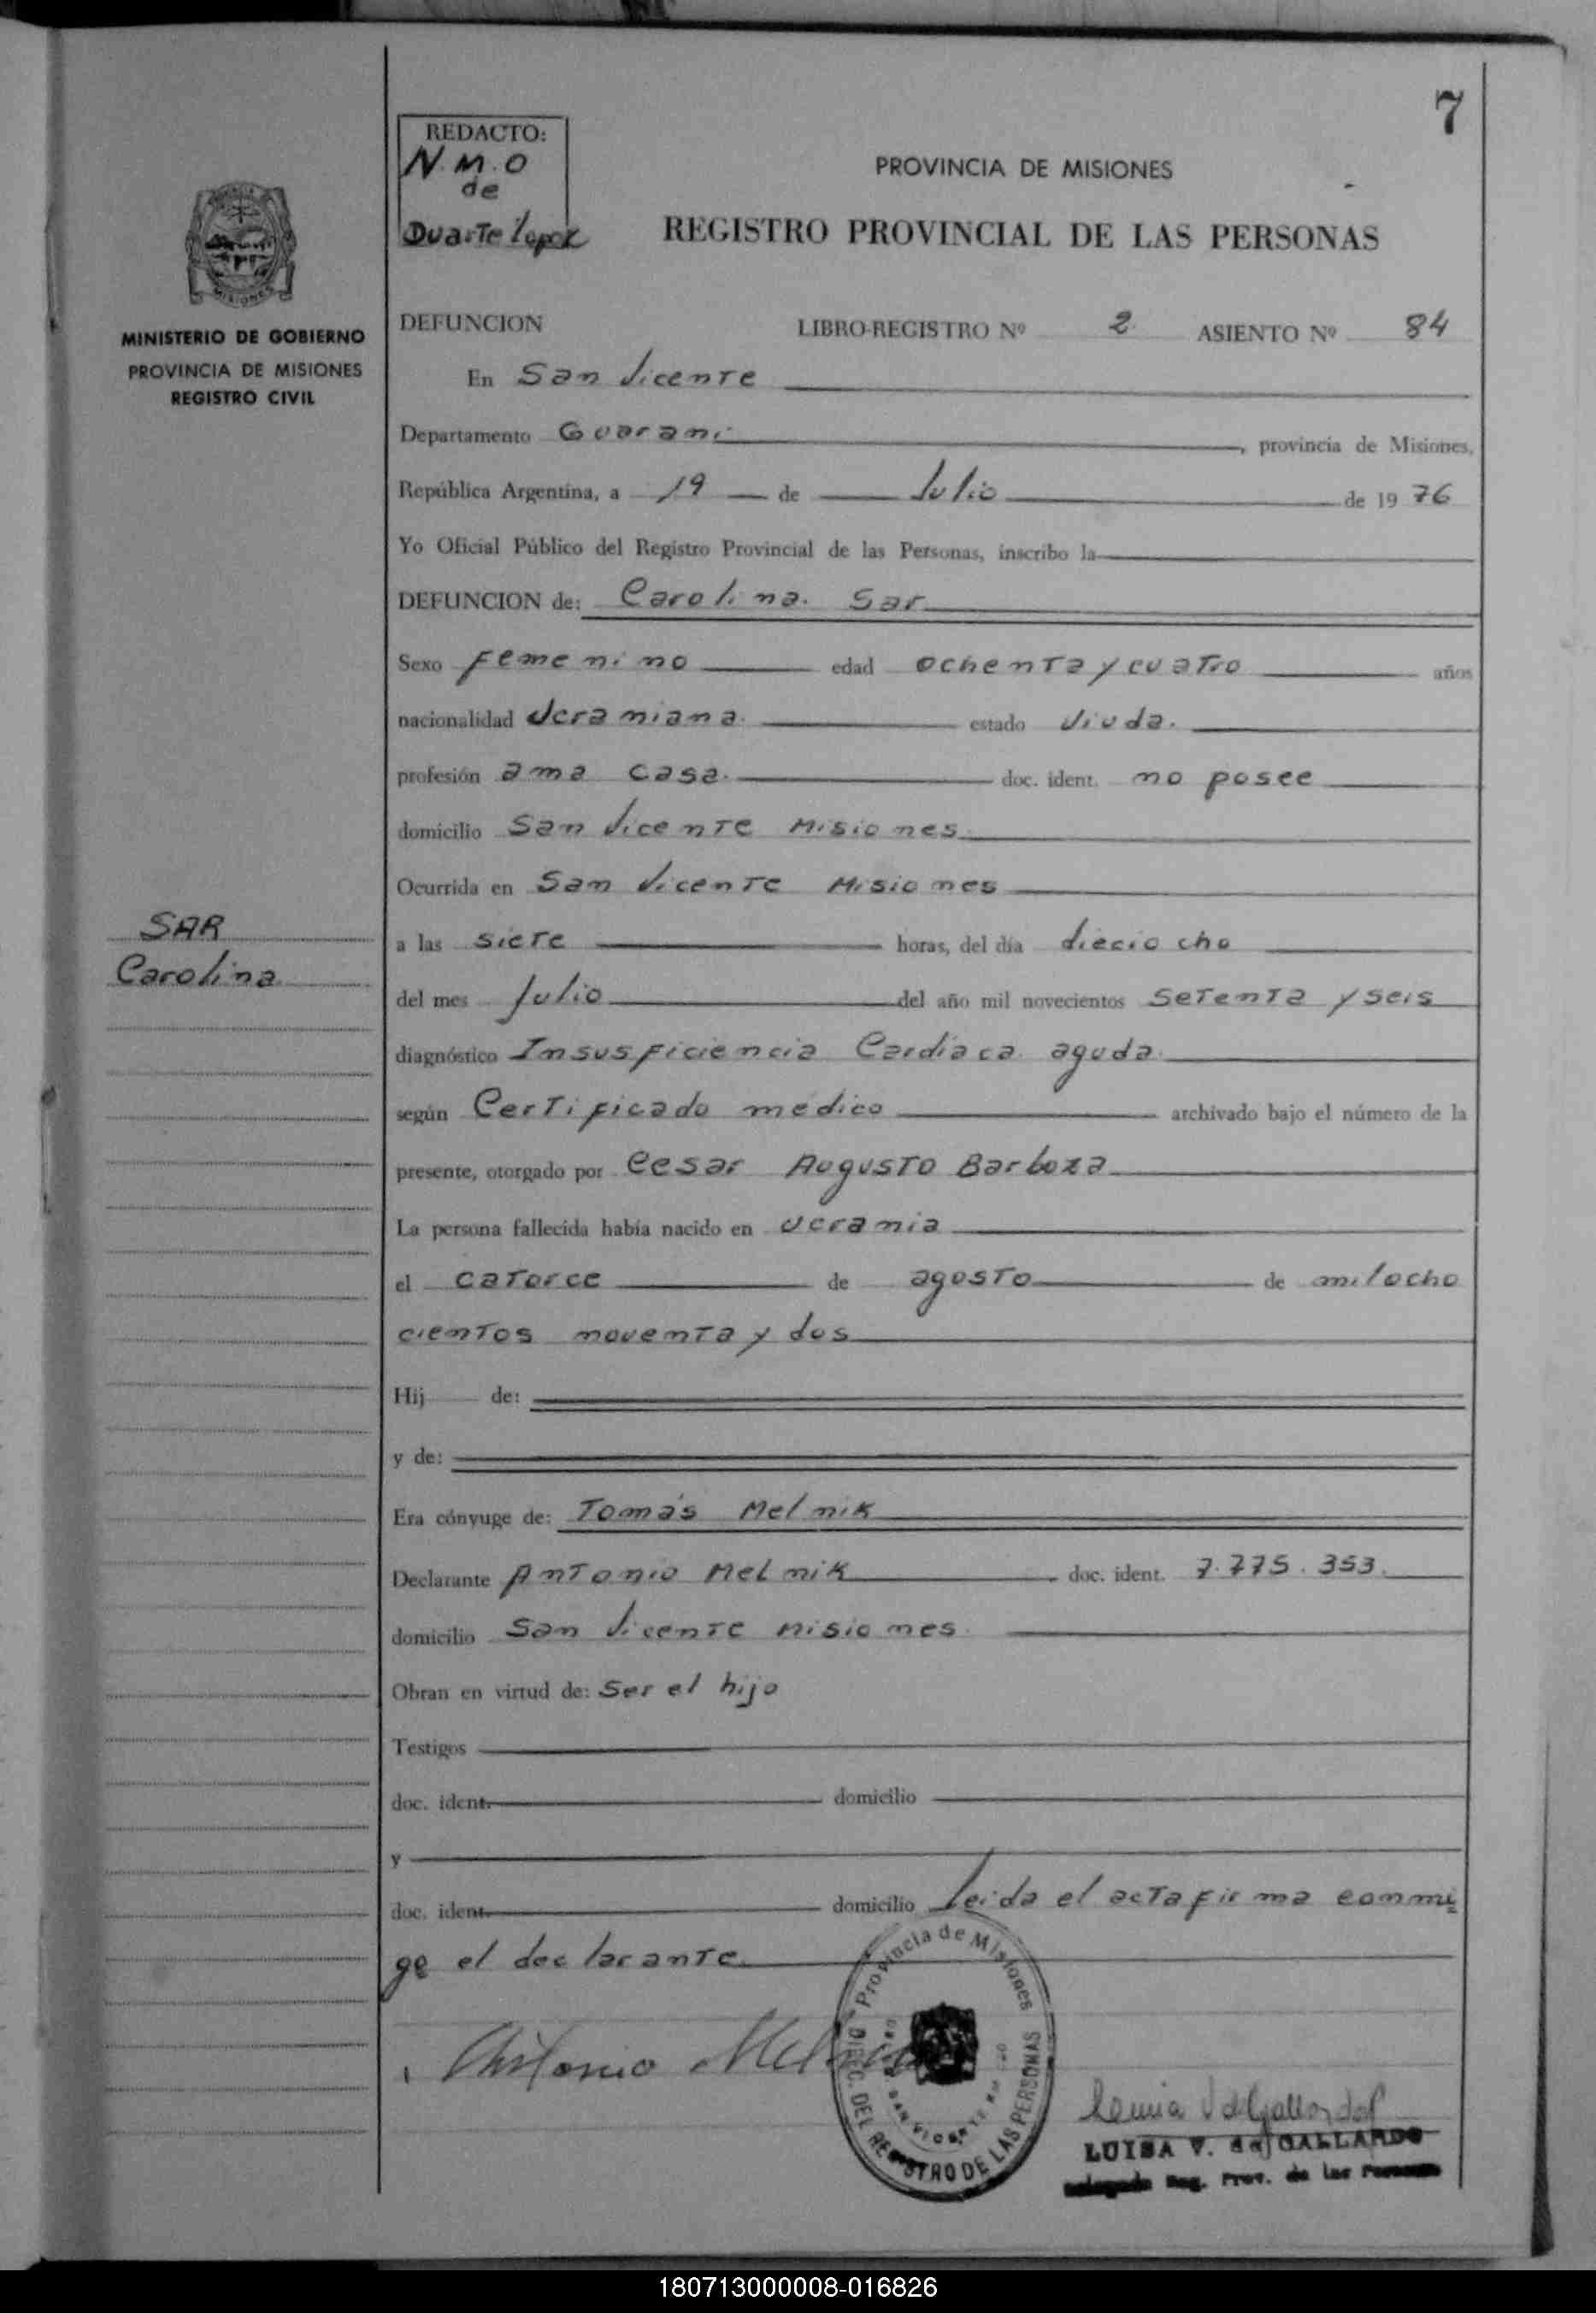 7
REDACTO:
N.M.O
de
Duarte Lopez
PROVINCIA DE MISIONES
REGISTRO PROVINCIAL DE LAS PERSONAS
MISIONES
MINISTERIO DE GOBIERNO
PROVINCIA DE MISIONES
REGISTRO CIVIL
DEFUNCION LIBRO-REGISTRO Nº 2 ASIENTO Nº 84
En San Vicente
Departamento Guarani, provincia de Misiones,
República Argentina, a 19 de Julio de 1976
Yo Oficial Público del Registro Provincial de las Personas, inscribo la
DEFUNCION de: Carolina Sar
Sexo Femenino edad ochenta y cuatro años
nacionalidad Ucraniana. estado Viuda.
profesión ama casa. doc. ident. no posee
domicilio San Vicente Misiones.
Ocurrida en San Vicente Misiones
SAR
Carolina
a las siete horas, del día dieciocho
del mes Julio del año mil novecientos setenta y seis
diagnóstico Insusficiencia Cardiaca aguda.
según Certificado medico archivado bajo el número de la
presente, otorgado por Cesar Augusto Barboza
La persona fallecida había nacido en Ucrania
el catorce de agosto de mil ocho
cientos noventa y dos
Hij de:
y de:
Era cónyuge de: Tomás Melnik
Declarante Antonio Melnik doc. ident. 7.775.353.
domicilio San Vicente Misiones.
Obran en virtud de: Ser el hijo
Testigos
doc. ident. domicilio
y
doc. ident. domicilio Leida el acta firma conmi
go el declarante.
Antonio Melnik
Provincia de Misiones
DIREC. DEL REGISTRO DE LAS PERSONAS
SAN VICENTE
LUISA V. de GALLARDO
Delegada Reg. Prov. de las Personas
180713000008-016826